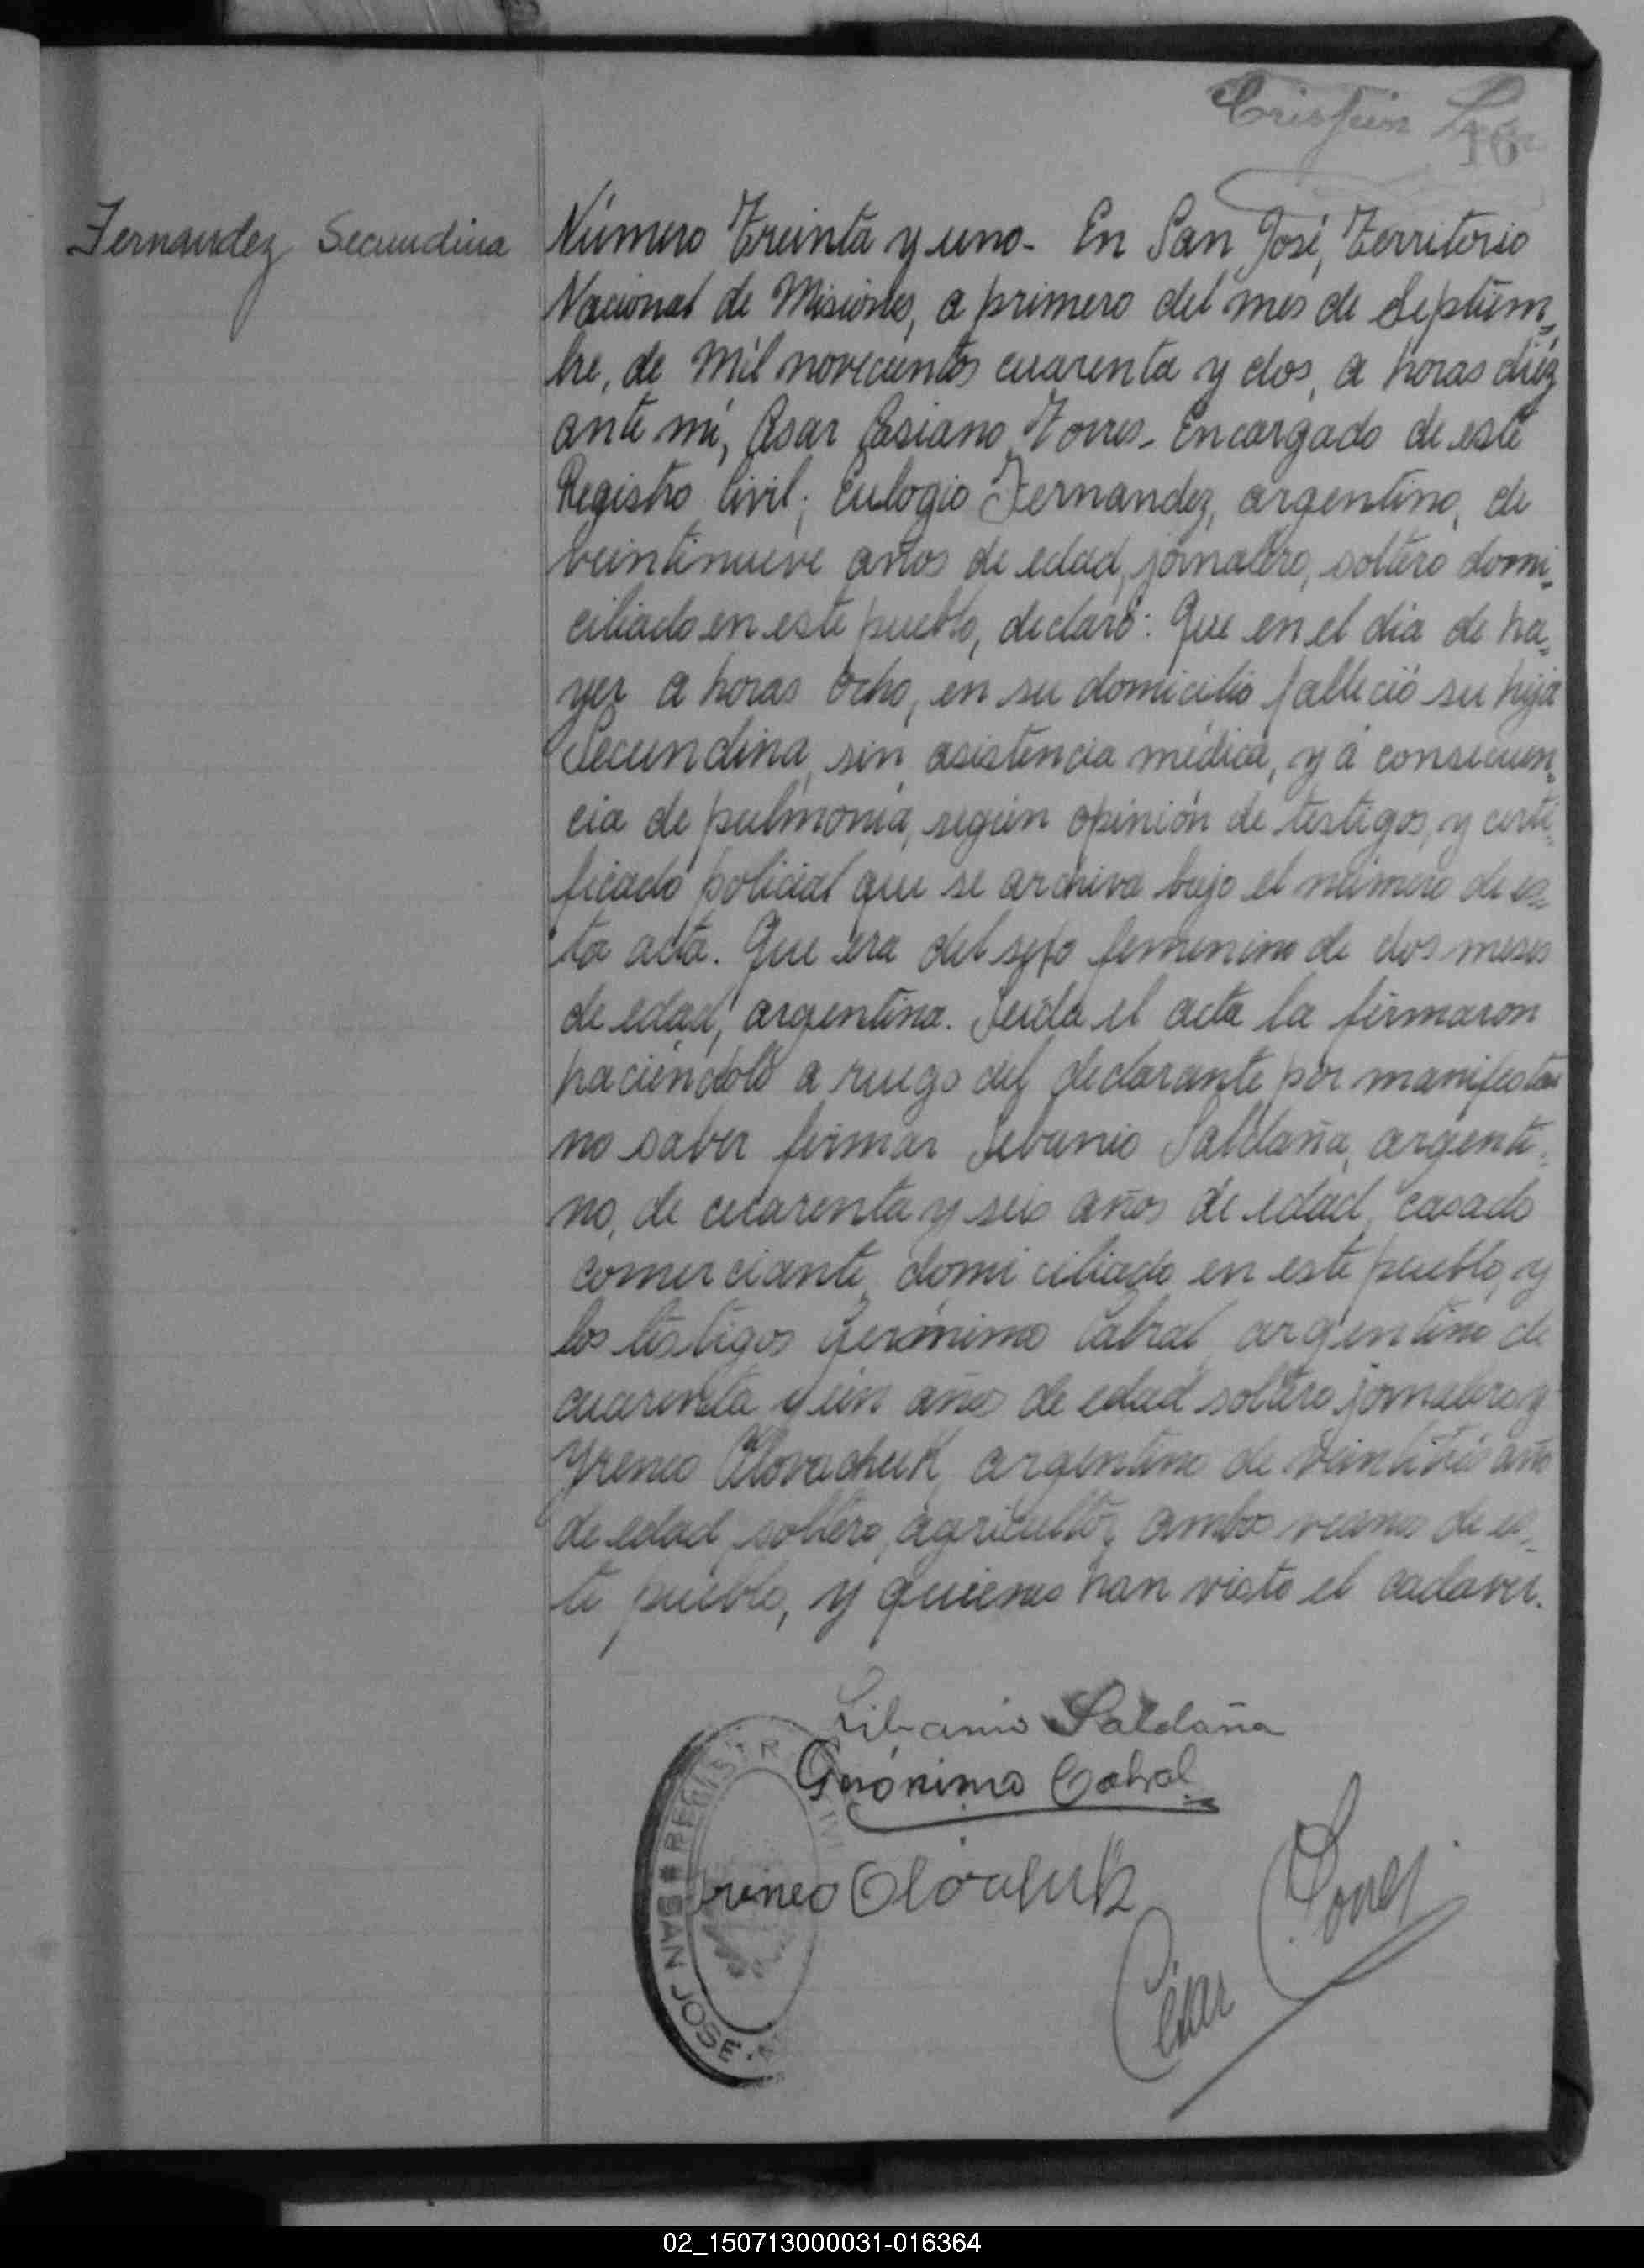 Cristian
16
Fernandez Secundina
Número Treinta y uno- En San José, Territorio
Nacional de Misiones, a primero del mes de Septiem-
bre, de mil novecientos cuarenta y dos, a horas diéz
ante mí, César Casiano Torres- Encargado de este
Registro Civil; Eulogio Fernandez, argentino, de
veintinueve años de edad, jornalero, soltero domi-
ciliado en este pueblo, declaró: Que en el día de ha-
yer a horas ocho, en su domicilio falleció su hija
Secundina, sin asistencia médica, y á consecuen-
cia de pulmonía, según opinión de testigos, y certi-
ficado policial que se archiva bajo el número de es-
ta acta. Que era del sexo femenino de dos meses
de edad, argentina. Leída el acta la firmaron
haciéndolo a ruego del declarante por manifestar
no saber firmar Libanio Saldaña, argenti-
no, de cuarenta y seis años de edad, casado
comerciante domiciliado en este pueblo, y
los testigos Gerónimo Cabral argentino de
cuarenta y un años de edad soltero jornalero y
Yreneo Olovachuk, argentino de veintitrés años
de edad, soltero, agricultor, ambos vecinos de es-
te pueblo, y quienes han visto el cadaver.
Libanio Saldaña
Gerónimo Cabral
Ireneo
César Torres
REGISTR
SAN JOSÉ
02_150713000031-016364